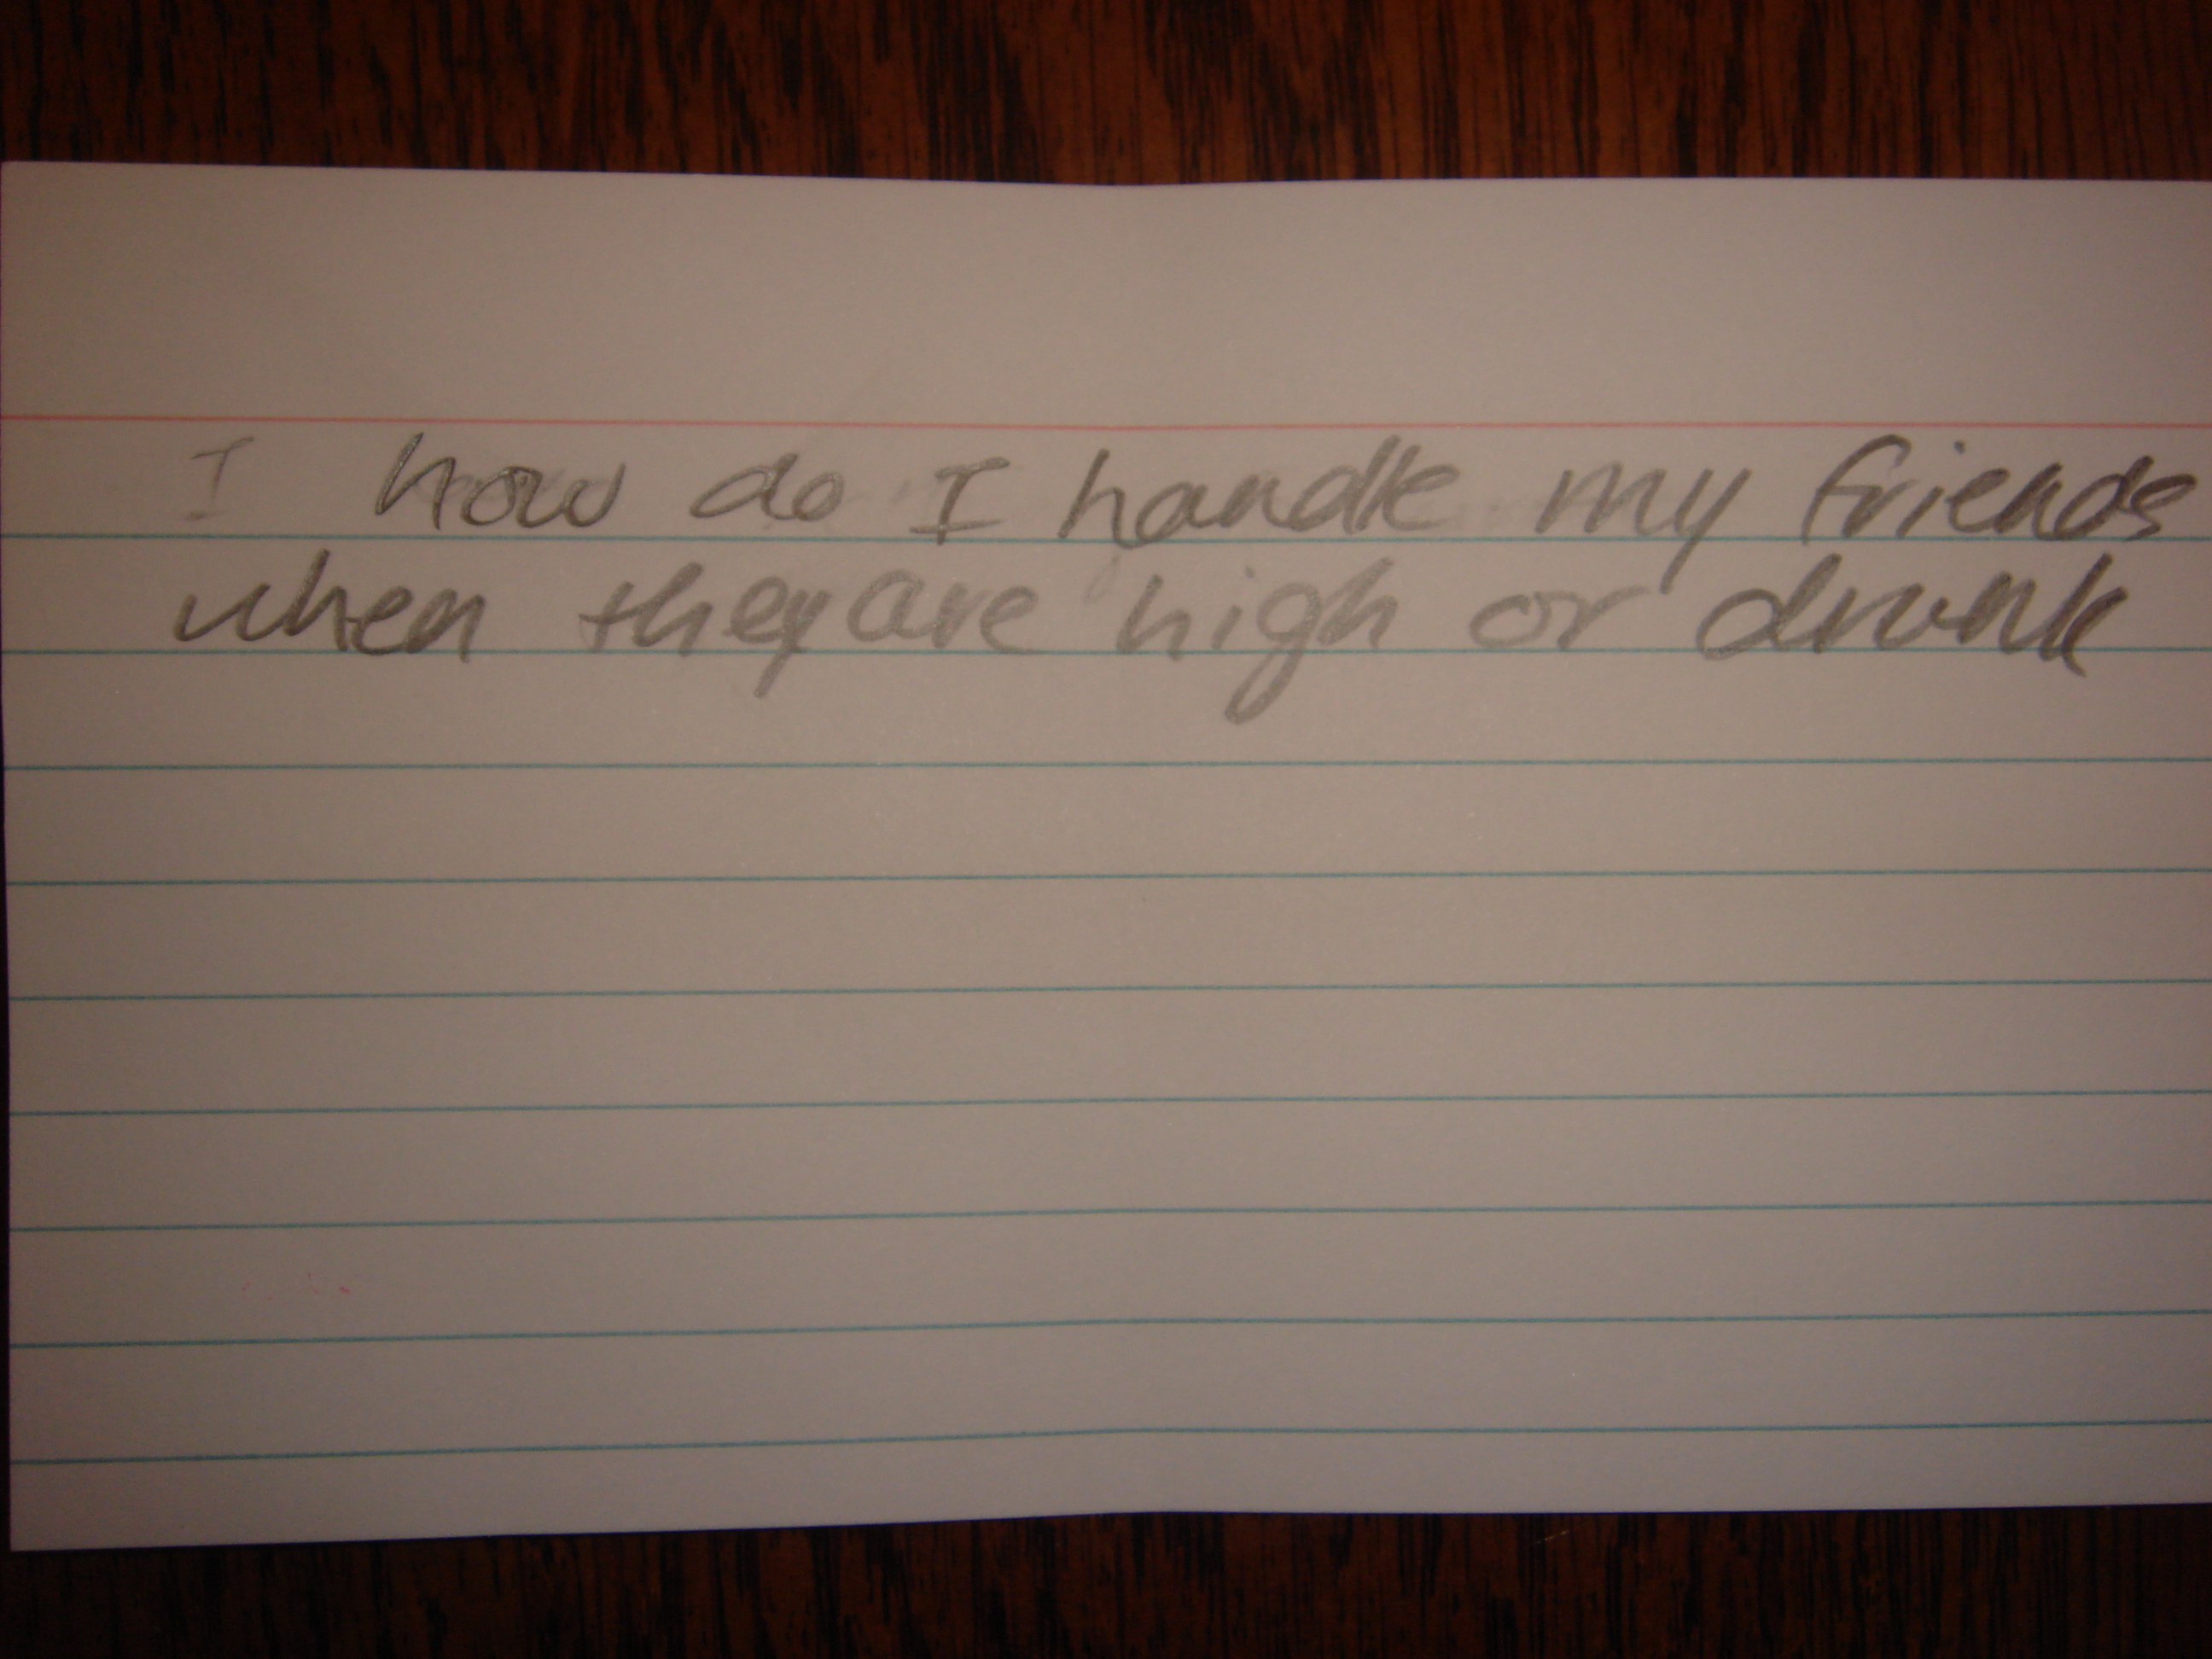 I how do I handle my friends
when they are high or drunk